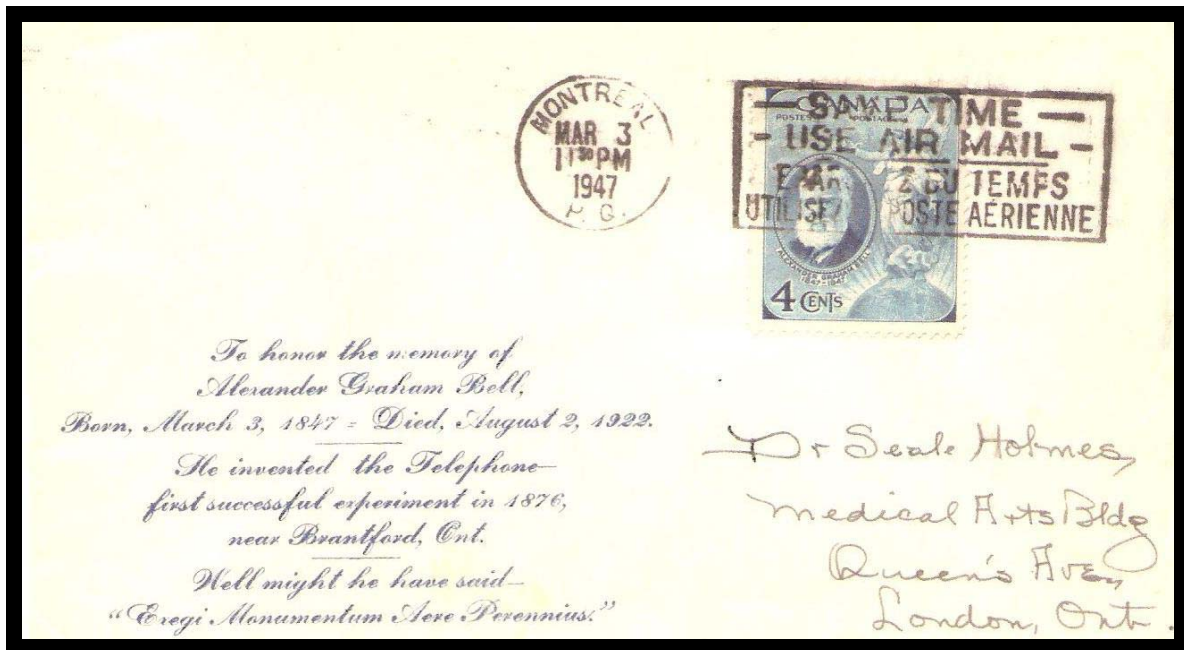 MONTREAL
MAR 3
11 30 PM
1947
P.Q.
SAVE TIME
- USE AIR MAIL -
DU TEMPS
UTILISEZ POSTE AÉRIENNE
CANADA
POSTES POSTAGE
ALEXANDER GRAHAM BELL
1847-1947
4 CENTS
To honor the memory of
Alexander Graham Bell,
Born, March 3, 1847 = Died, August 2, 1922.
He invented the Telephone—
first successful experiment in 1876,
near Brantford, Ont.
Well might he have said—
"Exegi Monumentum Aere Perennius."
Dr Seale Holmes,
Medical Arts Bldg
Queen's Ave,
London, Ont.